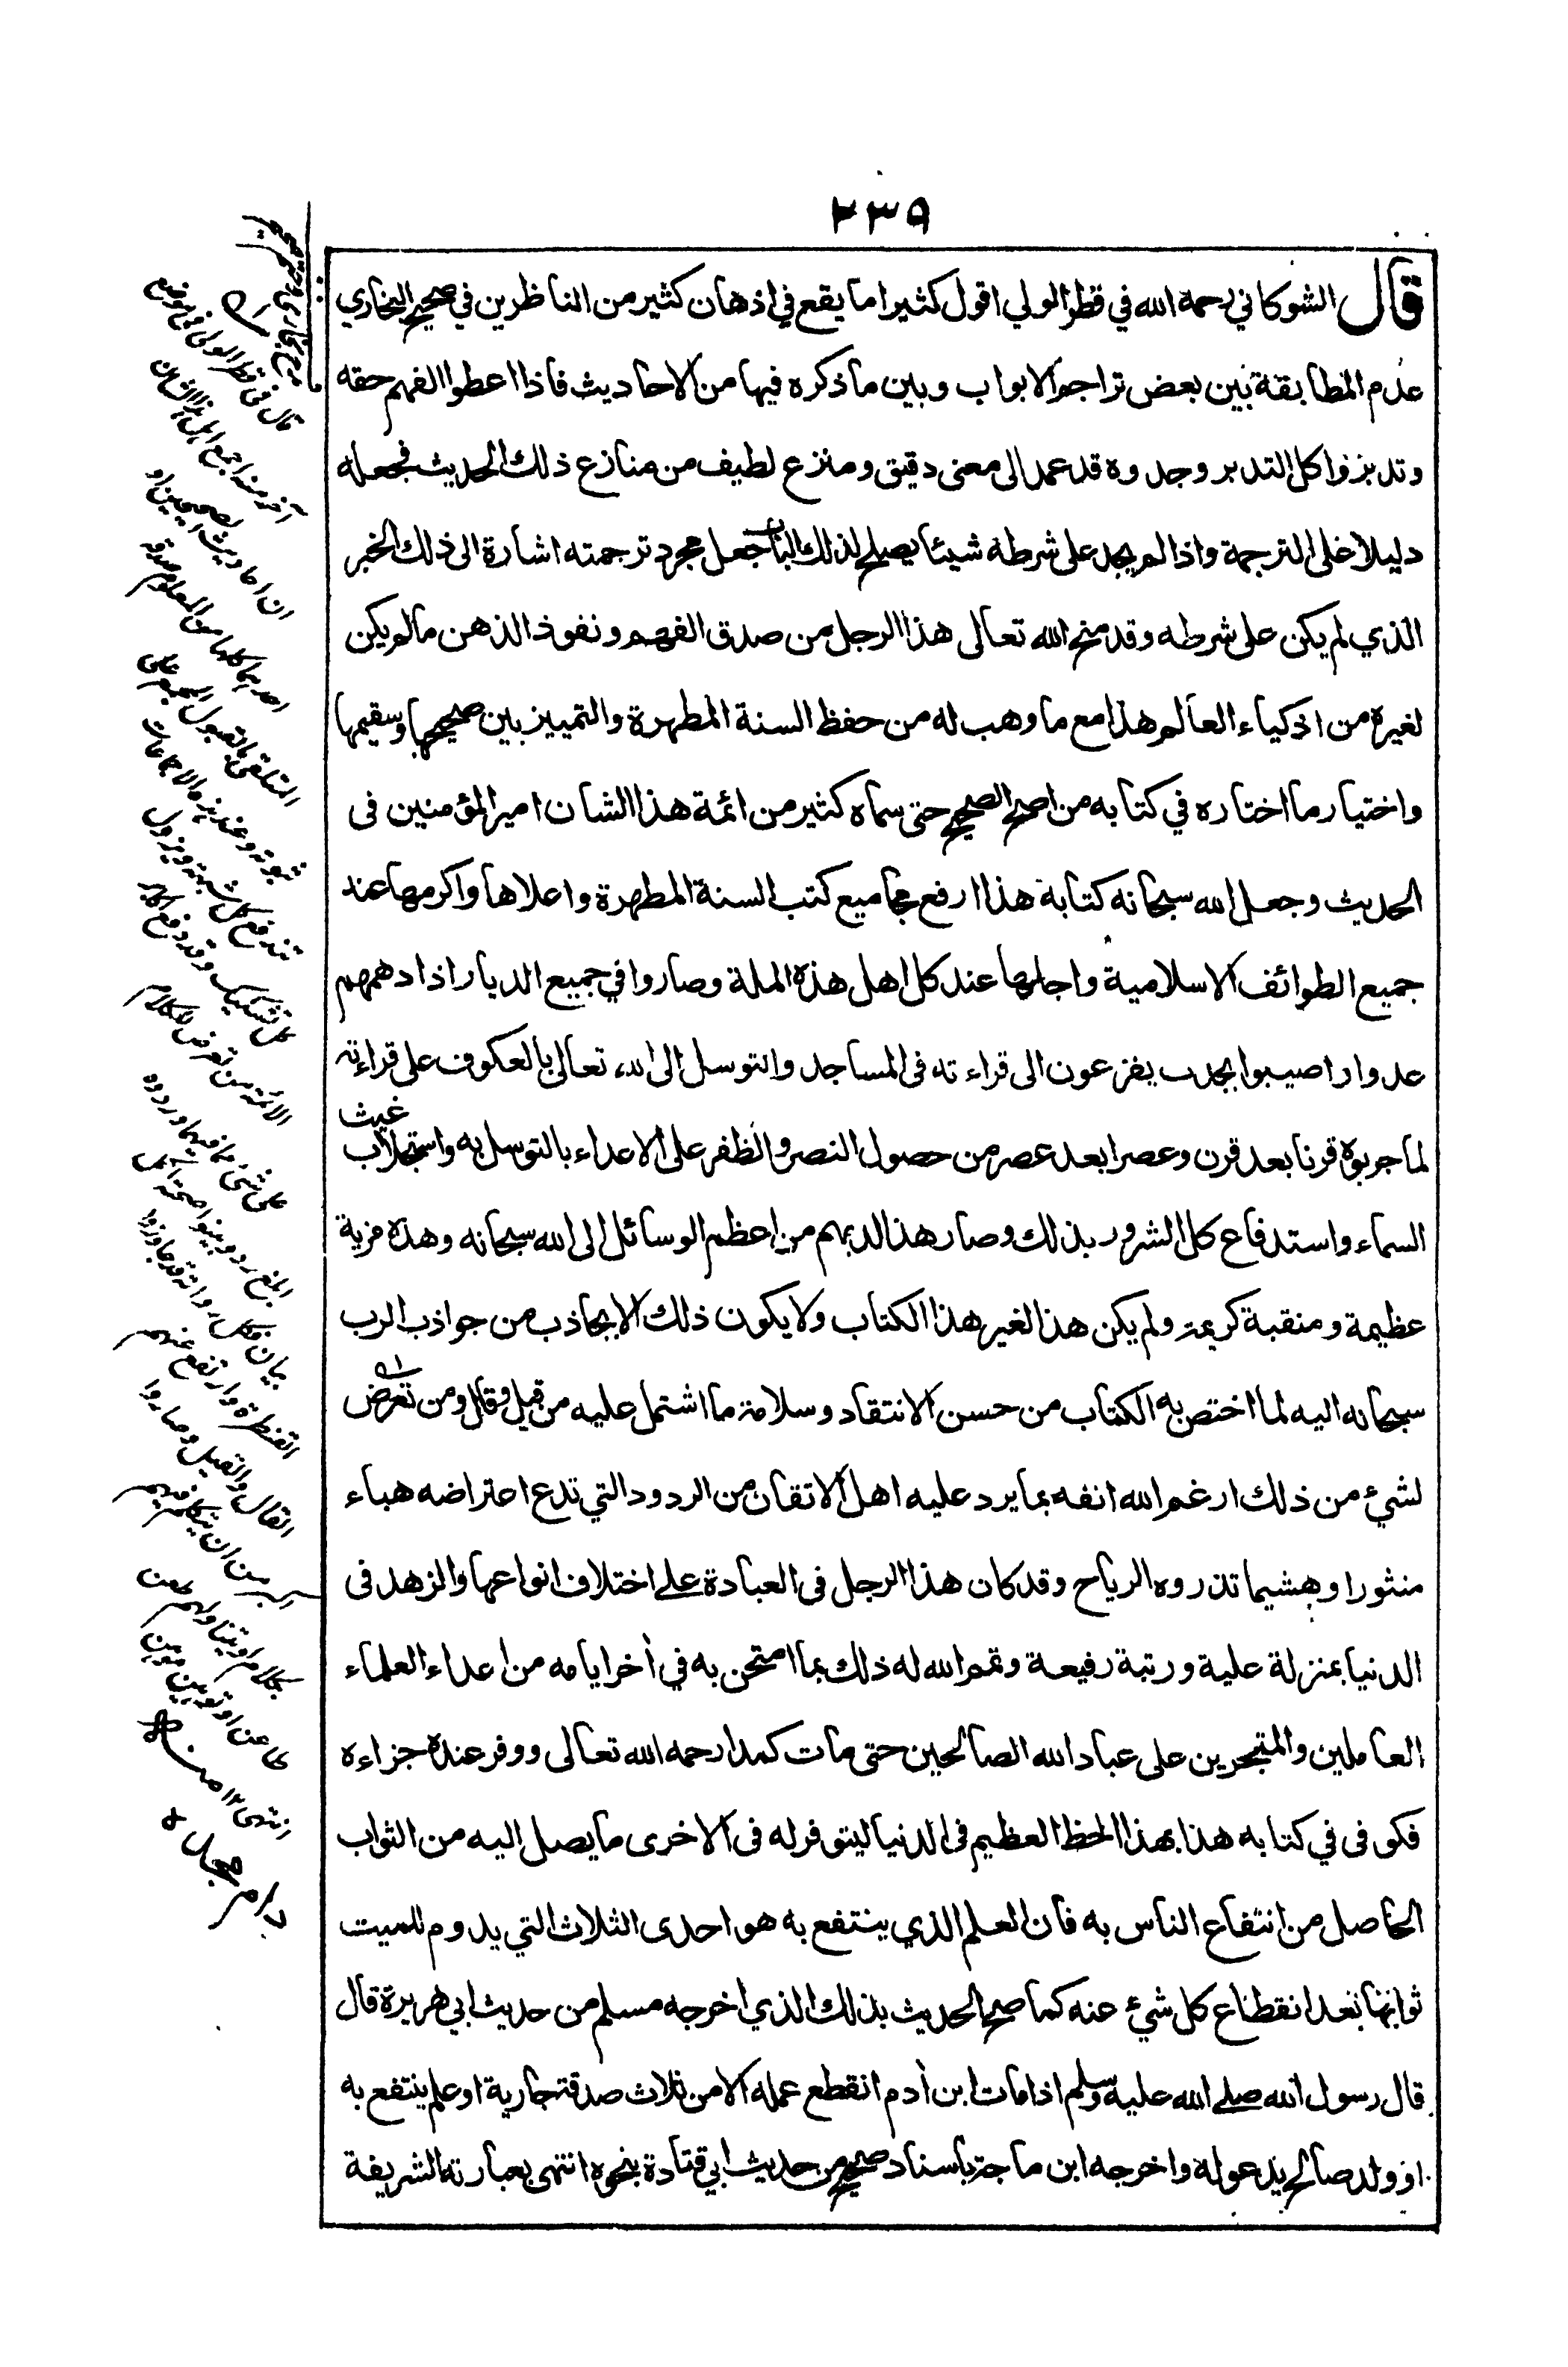 ٢٣٩
قال الشوكاني رحمة الله في قطر الولي اقول كثيرا ما يقع في اذهان كثير من الناظرين في صحيح البخاري
عدم المطابقة بين بعض تراجم الابواب وبين ما ذكره فيها من الاحاديث فاذا اعطوا الفهم حقه
وتدبروا كل التدبر وجدوه قد عمد الى معنى دقيق ومنزع لطيف من منازع ذلك الحديث فجعله
دليلا على الترجمة واذا لم يجد على شرطه شيئا يصلح لذلك الباب جعل مجرد ترجمته اشارة الى ذلك الخبر
الذي لم يكن على شرطه وقد منح الله تعالى هذا الرجل من صدق الفهم ونفوذ الذهن ما لم يكن
لغيره من اذكياء العالم هذا مع ما وهب له من حفظ السنة المطهرة والتمييز بين صحيحها وسقيمها
واختيار ما اختاره في كتابه من اصح الصحيح حتى سماه كثير من ائمة هذا الشان امير المؤمنين فى
الحديث وجعل الله سبحانه كتابه هذا ارفع مجاميع كتب السنة المطهرة واعلاها واكرمها عند
جميع الطوائف الاسلامية واجلها عند كل اهل هذه الملة وصاروا في جميع الديار اذا دهمهم
عدو او اصيبوا بجدب يفزعون الى قراءته فى المساجد والتوسل الى الله تعالى بالعكوف على قراءته
لما جربوه قرنا بعد قرن وعصرا بعد عصر من حصول النصر والظفر على الاعداء بالتوسل به واستجلاب غيث
السماء واستدفاع كل الشرور بذلك وصار هذا لديهم من اعظم الوسائل الى الله سبحانه وهذه مزية
عظيمة ومنقبة كريمة ولم يكن هذا لغير هذا الكتاب ولا يكون ذلك الا بجاذب من جواذب الرب
سبحانه اليه لما اختص به الكتاب من حسن الانتقاد وسلامة ما اشتمل عليه من قيل وقال ومن تعرض
لشيء من ذلك ارغم الله انفه بما يرد عليه اهل الاتقان من الردود التي تدع اعتراضه هباء
منثورا وهشيما تذروه الرياح وقد كان هذا الرجل فى العبادة على اختلاف انواعها والزهد فى
الدنيا بمنزلة علية ورتبة رفيعة وتمم الله له ذلك بما امتحن به في أخر ايامه من اعداء العلماء
العاملين والمتجرين على عباد الله الصالحين حتى مات كمدا رحمه الله تعالى ووفر عنده جزاءه
فكوفى في كتابه هذا بهذا الحظ العظيم فى الدنيا ليتوفر له فى الاخرى ما يصل اليه من الثواب
الحاصل من انتفاع الناس به فان العلم الذي ينتفع به هو احدى الثلاث التي يدوم للميت
ثوابها بعد انقطاع كل شيء عنه كما صح الحديث بذلك الذي اخرجه مسلم من حديث ابي هريرة قال
قال رسول الله صلى الله عليه وسلم اذا مات ابن أدم انقطع عمله الا من ثلاث صدقة جارية او علم ينتفع به
او ولد صالح يدعو له واخرجه ابن ماجة باسناد صحيح من حديث ابي قتادة بنحوه انتهى بعبارته الشريفة
قال فى قطر الولى فى موضع
آخر منه اجمع اهل هذا الشان
ان احاديث الصحيحين او
احدهما كلها من المعلوم صدقه
المتلقى بالقبول المجمع على
ثبوته وعند هذه الاجماعات
تندفع كل شبهة ويزول
كل تشكيك وقد دفع اكابر
الائمة من تعرض للكلام
على شئ مما فيهما وردوه
ابلغ رد وبينوا صحته اكمل
بيان فكل رواته قد جاوزوا
القنطرة وارتفع عنهم
القال والقيل وصاروا
اكبر من ان يتكلم فيهم
بكلام او يتناولهم طعن
طاعن او توهين موهن
انتهى ١٢ منه
دام مجده